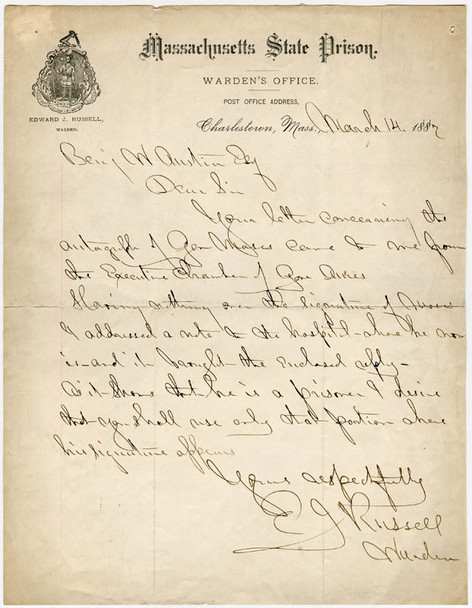 Massachusetts State Prison.
WARDEN'S OFFICE.
POST OFFICE ADDRESS,
EDWARD J. RUSSELL,
WARDEN.
Charlestown, Mass., March 14 1887
Benj W Austin Esq
Dear Sir
Your letter concerning the
autograph of Gov Moses came to me from
the Executive Chamber of Gov Ames
Having nothing over the signature of Moses
I addressed a note to the hospital - where he now
is - and it brought the enclosed reply -
As it shows that he is a prisoner I desire
that you shall use only that portion where
his signature appears
Yours respectfully
E J Russell
Warden